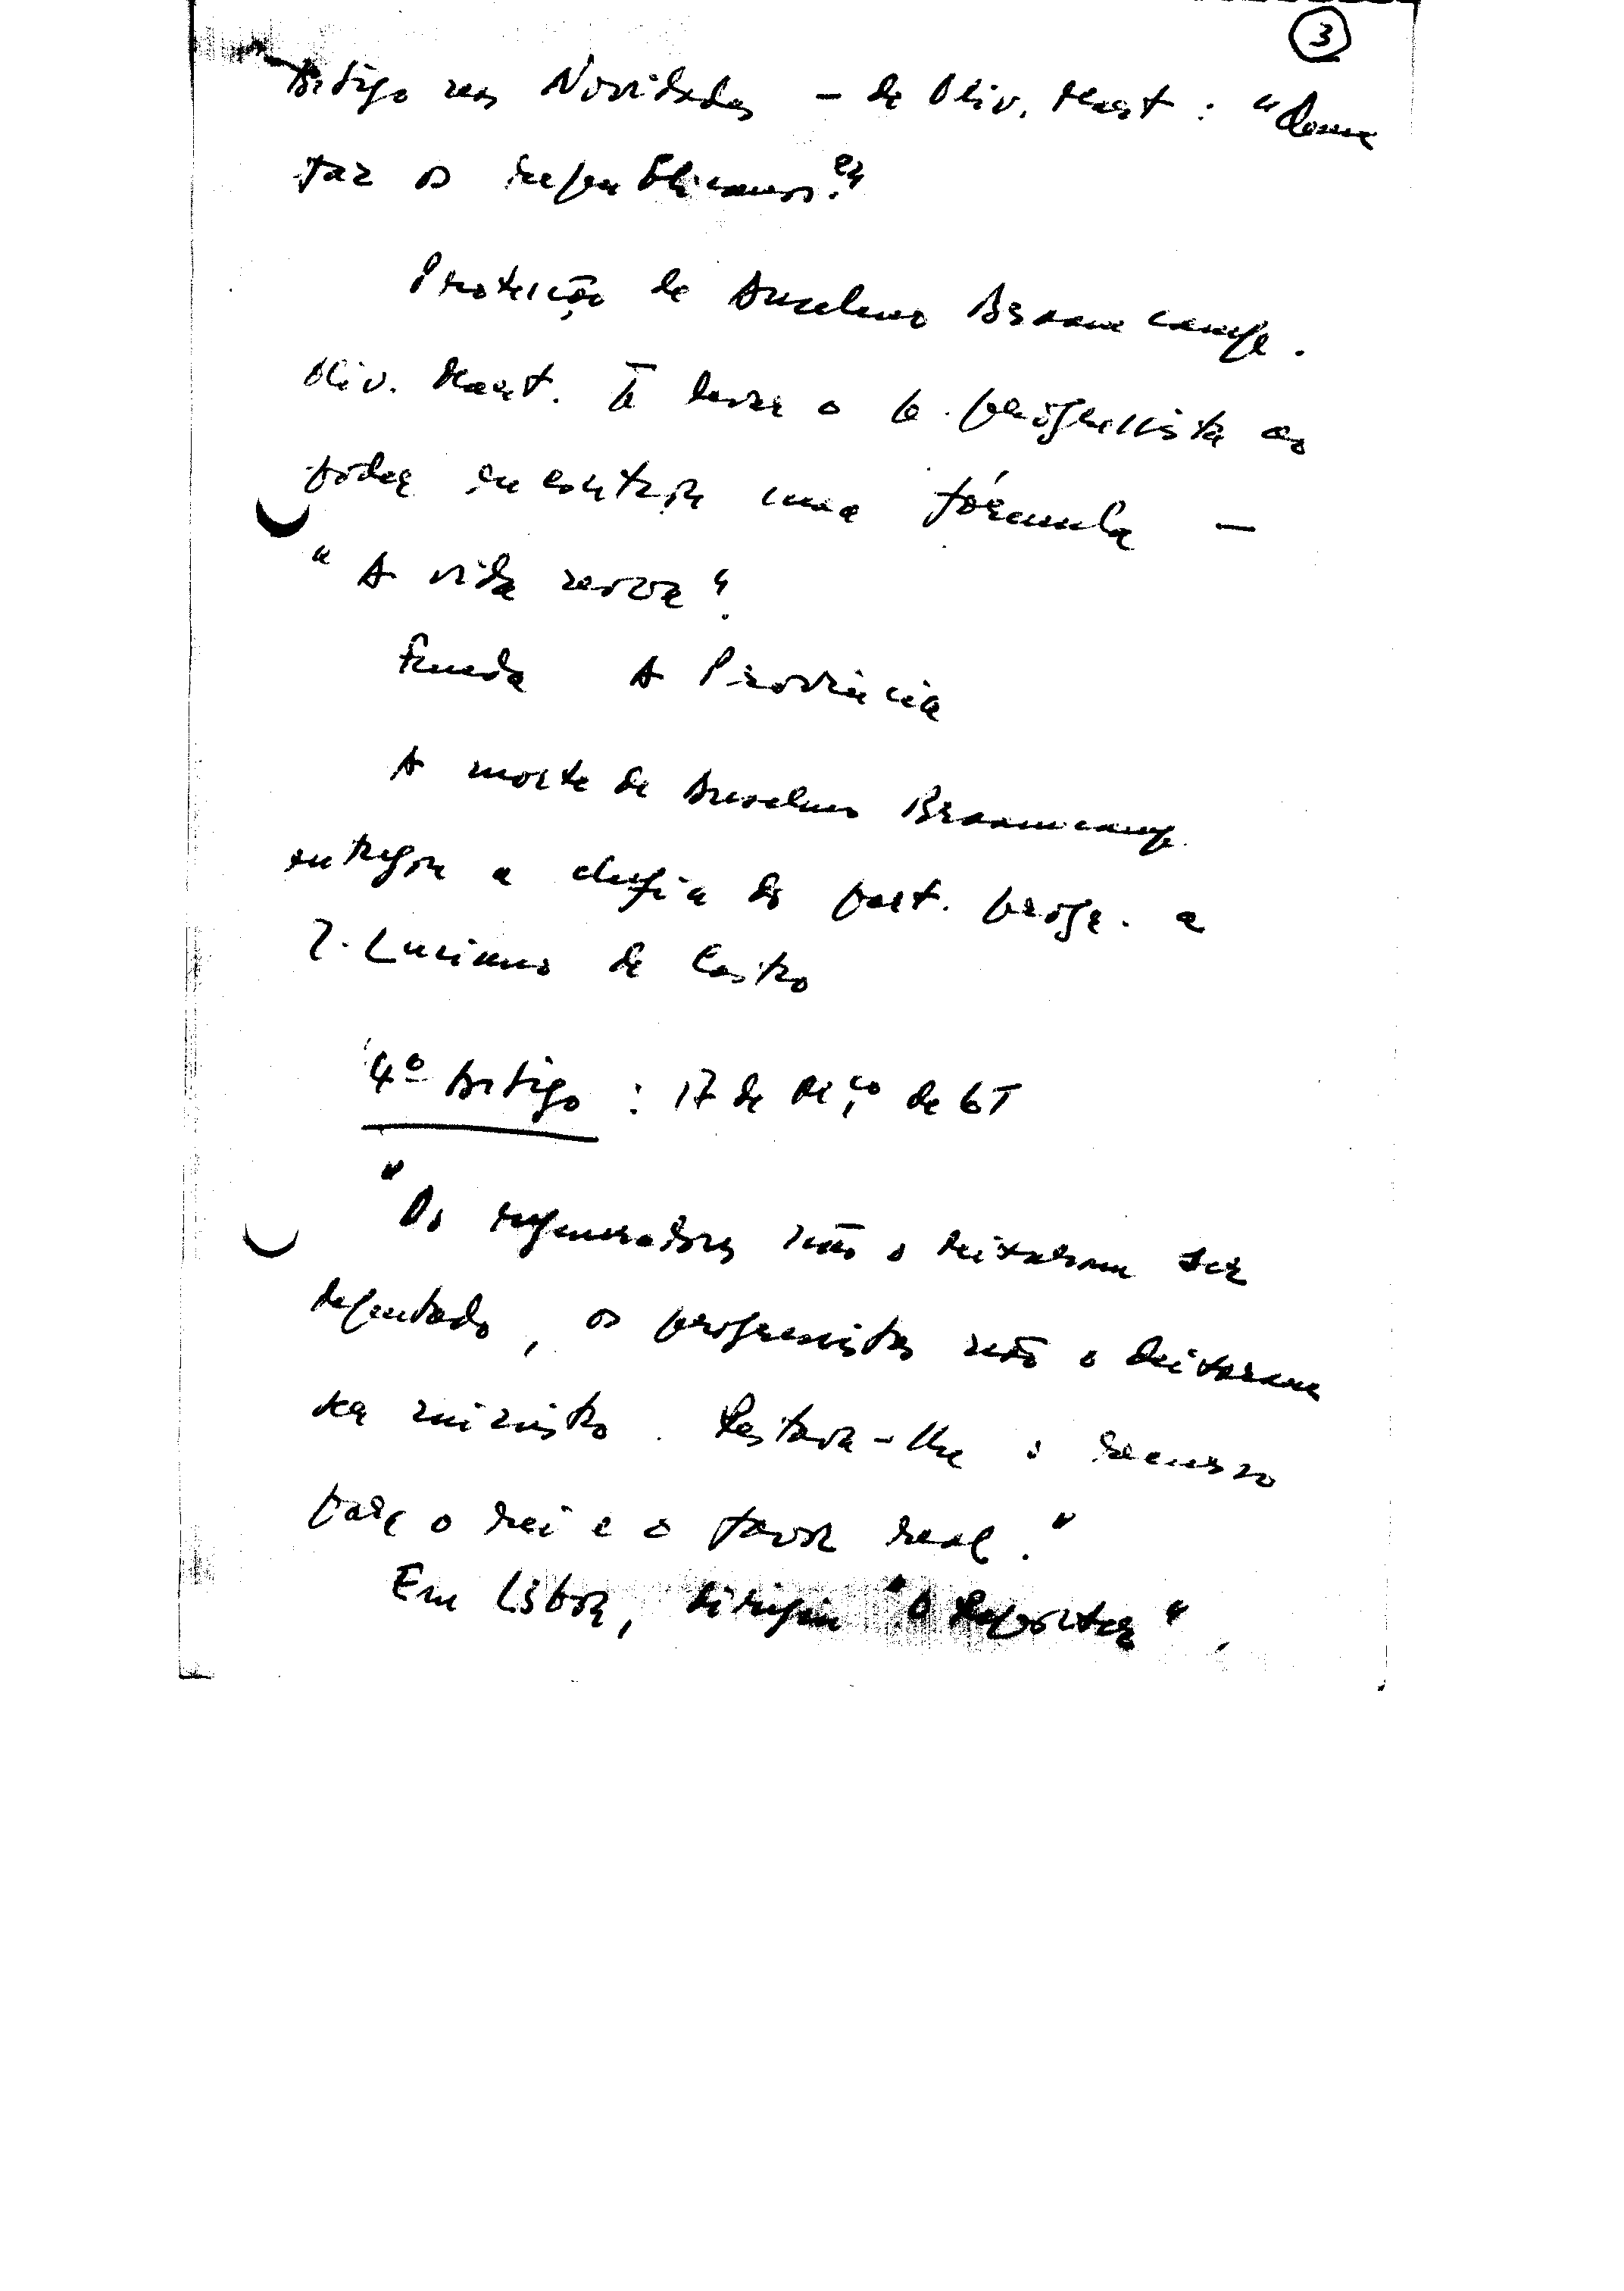 3
Artigo nas Novidades – de Oliv. Mart : "Como
faz os republicanos."
Protecção de Anselmo Braamcamp.
Oliv. Mart. p̄ levar o p. progressista ao
poder encontrou uma fórmula –
"A vida nova".
Funda A Província
A morte de Anselmo Braamcamp
entregou a chefia do part. progr. a
J. Luciano de Castro
4º Artigo : 17 de de 6T
"Os regeneradores não o deixaram ser
deputado, os progressistas não o deixaram
ser ministro. Restava-lhe o recurso
para o rei e o favor real."
Em Lisboa, dirigiu "O Reporter",